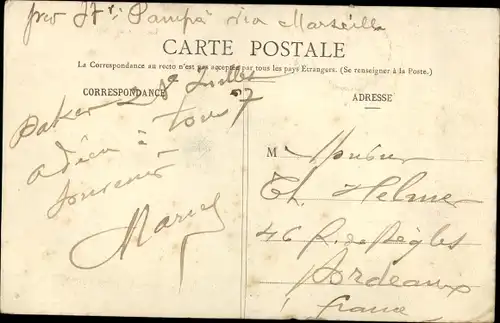 per Str Pampa via Marseille
CARTE POSTALE
La Correspondance au recto n'est pas acceptée par tous les pays Etrangers. (Se renseigner à la Poste.)
CORRESPONDANCE
ADRESSE
Juillet
7
adieu à tous
souvenir
Marcel
M Monsieur
Th. Helmer
46 R. de Bègles
Bordeaux
France